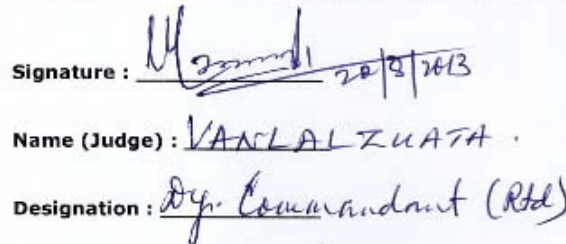 Signature : 20/8/2013
Name (Judge) : VANLALZUATA .
Designation : Dy. Commandant (Rtd)